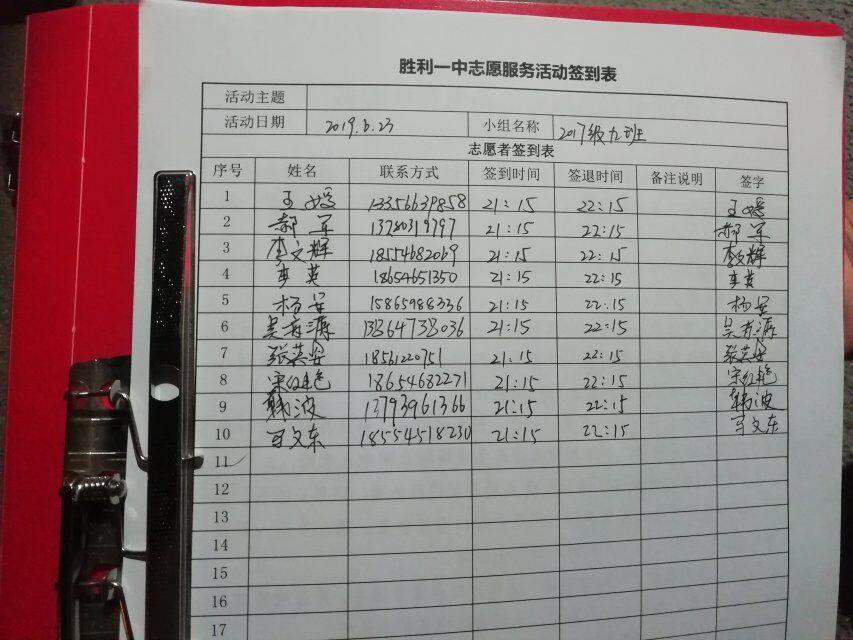 胜利一中志愿服务活动签到表
活动主题
活动日期 2019.6.23 小组名称 2017级九班
志愿者签到表
序号 姓名 联系方式 签到时间 签退时间 备注说明 签字
1 王嫣 13356639858 21:15 22:15 王嫣
2 郝军 13780319797 21:15 22:15 郝军
3 李文辉 18554682069 21:15 22:15 李文辉
4 李英 18654651350 21:15 22:15 李英
5 杨军 15865988336 21:15 22:15 杨军
6 21:15 22:15
7 张英 18561220751 21:15 22:15 张英
8 宋红艳 18654682271 21:15 22:15 宋红艳
9 韩波 13793961366 21:15 22:15 韩波
10 文东 18554518230 21:15 22:15 文东
11
12
13
14
15
16
17